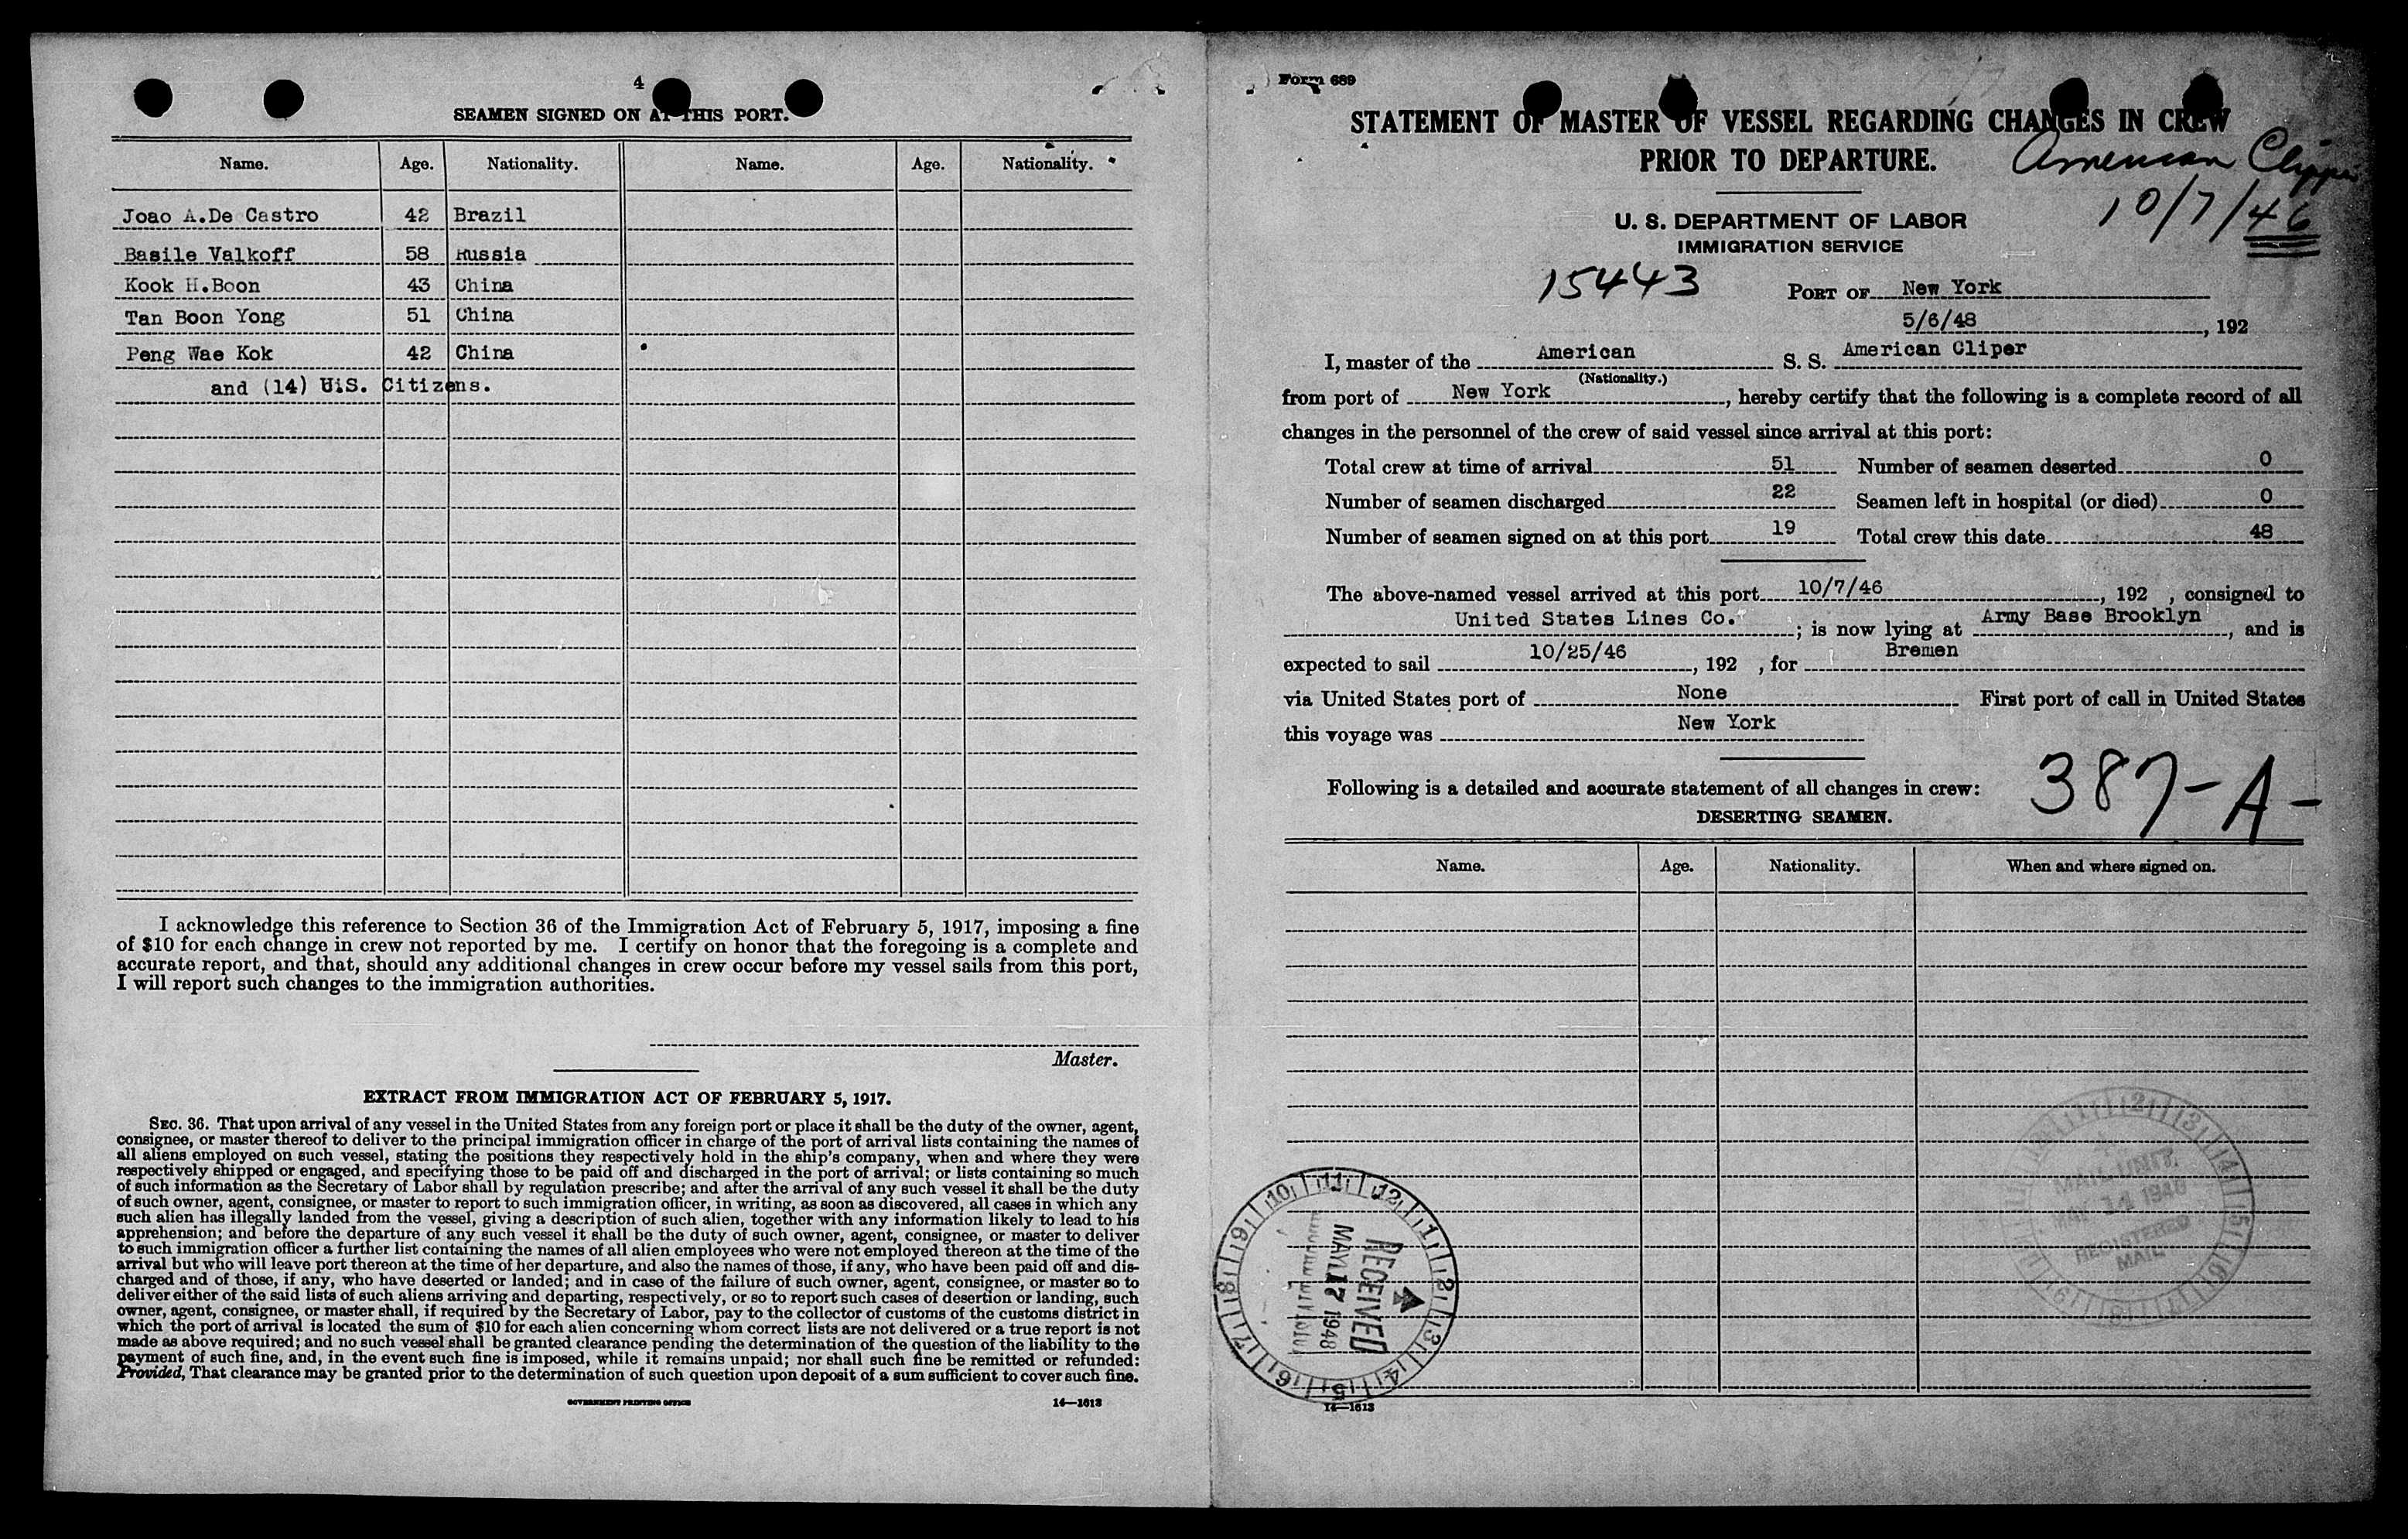 4
SEAMEN SIGNED ON AT THIS PORT.
Name. Age. Nationality. Name. Age. Nationality.
Joao A.De Castro 42 Brazil
Basile Valkoff 58 Russia
Kook H.Boon 43 China
Tan Boon Yong 51 China
Peng Wae Kok 42 China
and (14) UiS. Citizens.
I acknowledge this reference to Section 36 of the Immigration Act of February 5, 1917, imposing a fine
of $10 for each change in crew not reported by me. I certify on honor that the foregoing is a complete and
accurate report, and that, should any additional changes in crew occur before my vessel sails from this port,
I will report such changes to the immigration authorities.
Master.
EXTRACT FROM IMMIGRATION ACT OF FEBRUARY 5, 1917.
SEC. 36. That upon arrival of any vessel in the United States from any foreign port or place it shall be the duty of the owner, agent,
consignee, or master thereof to deliver to the principal immigration officer in charge of the port of arrival lists containing the names of
all aliens employed on such vessel, stating the positions they respectively hold in the ship's company, when and where they were
respectively shipped or engaged, and specifying those to be paid off and discharged in the port of arrival; or lists containing so much
of such information as the Secretary of Labor shall by regulation prescribe; and after the arrival of any such vessel it shall be the duty
of such owner, agent, consignee, or master to report to such immigration officer, in writing, as soon as discovered, all cases in which any
such alien has illegally landed from the vessel, giving a description of such alien, together with any information likely to lead to his
apprehension; and before the departure of any such vessel it shall be the duty of such owner, agent, consignee, or master to deliver
to such immigration officer a further list containing the names of all alien employees who were not employed thereon at the time of the
arrival but who will leave port thereon at the time of her departure, and also the names of those, if any, who have been paid off and dis-
charged and of those, if any, who have deserted or landed; and in case of the failure of such owner, agent, consignee, or master so to
deliver either of the said lists of such aliens arriving and departing, respectively, or so to report such cases of desertion or landing, such
owner, agent, consignee, or master shall, if required by the Secretary of Labor, pay to the collector of customs of the customs district in
which the port of arrival is located the sum of $10 for each alien concerning whom correct lists are not delivered or a true report is not
made as above required; and no such vessel shall be granted clearance pending the determination of the question of the liability to the
payment of such fine, and, in the event such fine is imposed, while it remains unpaid; nor shall such fine be remitted or refunded:
Provided, That clearance may be granted prior to the determination of such question upon deposit of a sum sufficient to cover such fine.
GOVERNMENT PRINTING OFFICE 14—1613
Form 689
STATEMENT OF MASTER OF VESSEL REGARDING CHANGES IN CREW
PRIOR TO DEPARTURE.
American Clipper
10/7/46
U. S. DEPARTMENT OF LABOR
IMMIGRATION SERVICE
15443
PORT OF New York
5/6/48, 192
I, master of the American S. S. American Cliper
(Nationality.)
from port of New York, hereby certify that the following is a complete record of all
changes in the personnel of the crew of said vessel since arrival at this port:
Total crew at time of arrival 51 Number of seamen deserted 0
Number of seamen discharged 22 Seamen left in hospital (or died) 0
Number of seamen signed on at this port 19 Total crew this date 48
The above-named vessel arrived at this port 10/7/46, 192 , consigned to
United States Lines Co. ; is now lying at Army Base Brooklyn, and is
expected to sail 10/25/46, 192 , for Bremen
via United States port of None First port of call in United States
this voyage was New York
387-A-
Following is a detailed and accurate statement of all changes in crew:
DESERTING SEAMEN.
Name. Age. Nationality. When and where signed on.
RECEIVED
MAY 17 1948
10 11 12 1 2 3 4 5 6 7 8 9
MAIL UNIT
MAY 14 1948
REGISTERED
MAIL
14—1613